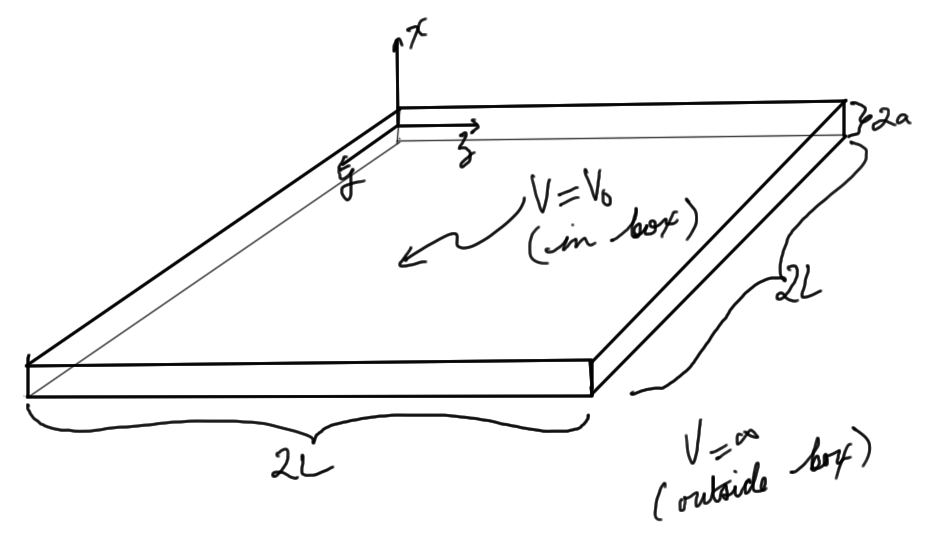 x
}2a
z
y
V=V₀
(in box)
2L
2L
V=∞
(outside box)